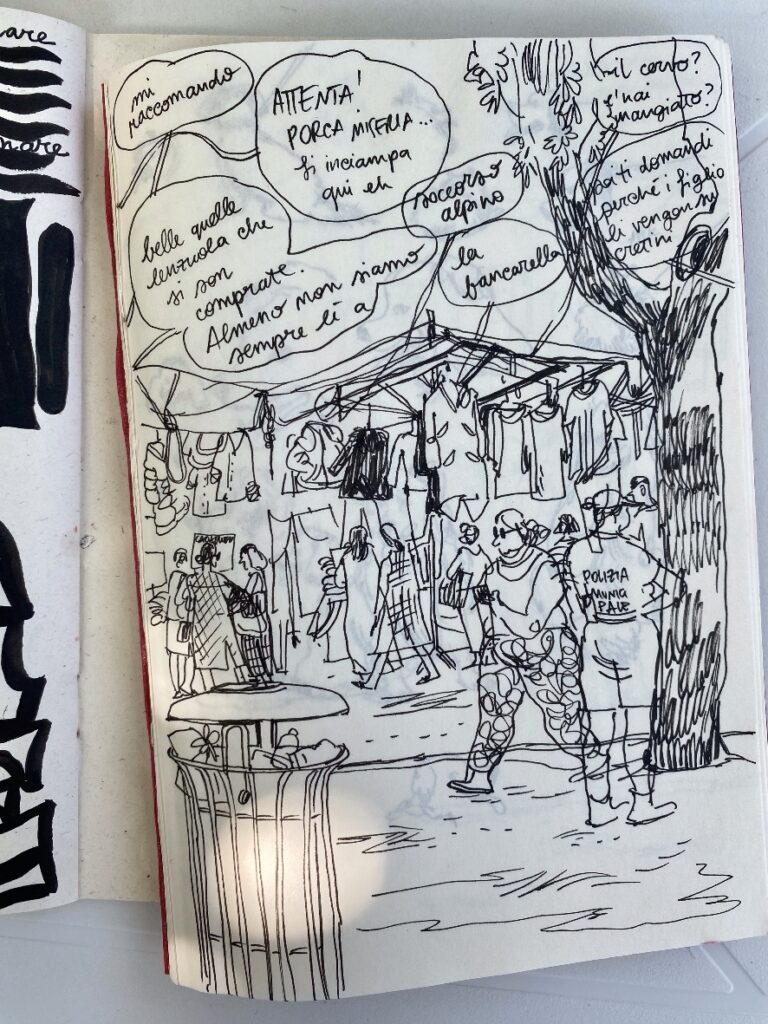 mi
raccomando
ATTENTA!
PORCA MISERIA...
si inciampa
qui eh
il
l'hai
mangiato?
soccorso
alpino
poi ti domandi
perché i figlio
li vengon su
cretini
belle quelle
lenzuola che
si son
comprate.
Almeno non siamo
sempre lì a
la
bancarella
POLIZIA
MUNICI
PALE